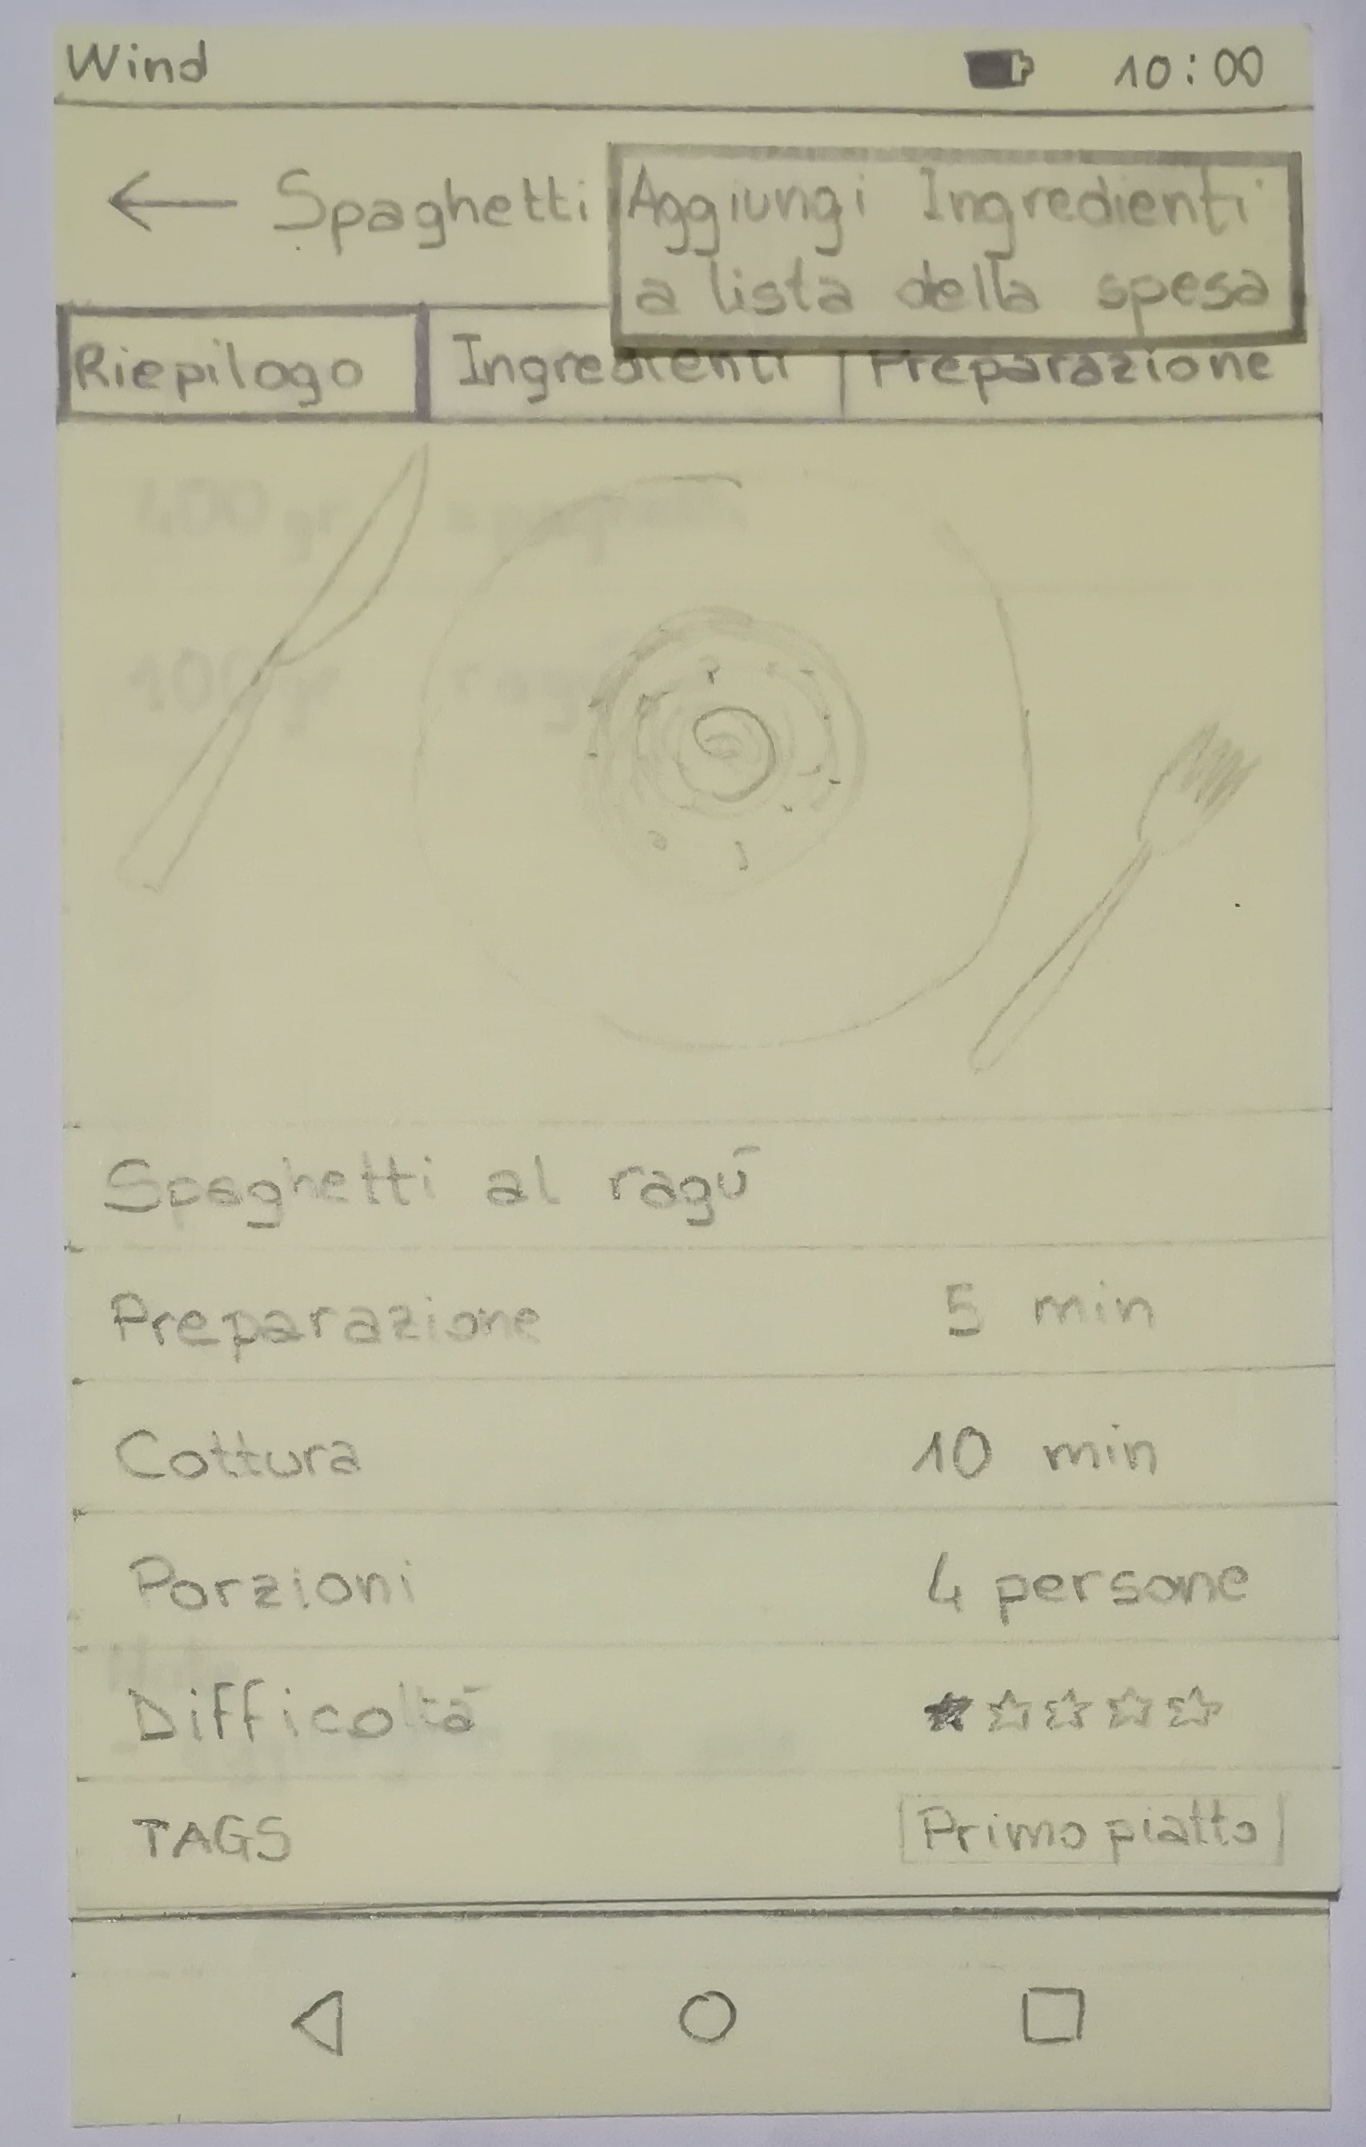 Wind 10:00
← Spaghetti
Aggiungi Ingredienti
a lista della spesa
Riepilogo Ingredienti Preparazione
400 gr spaghetti
100 gr ragù
Spaghetti al ragù
Preparazione 5 min
Cottura 10 min
Porzioni 4 persone
Difficoltà
TAGS Primo piatto